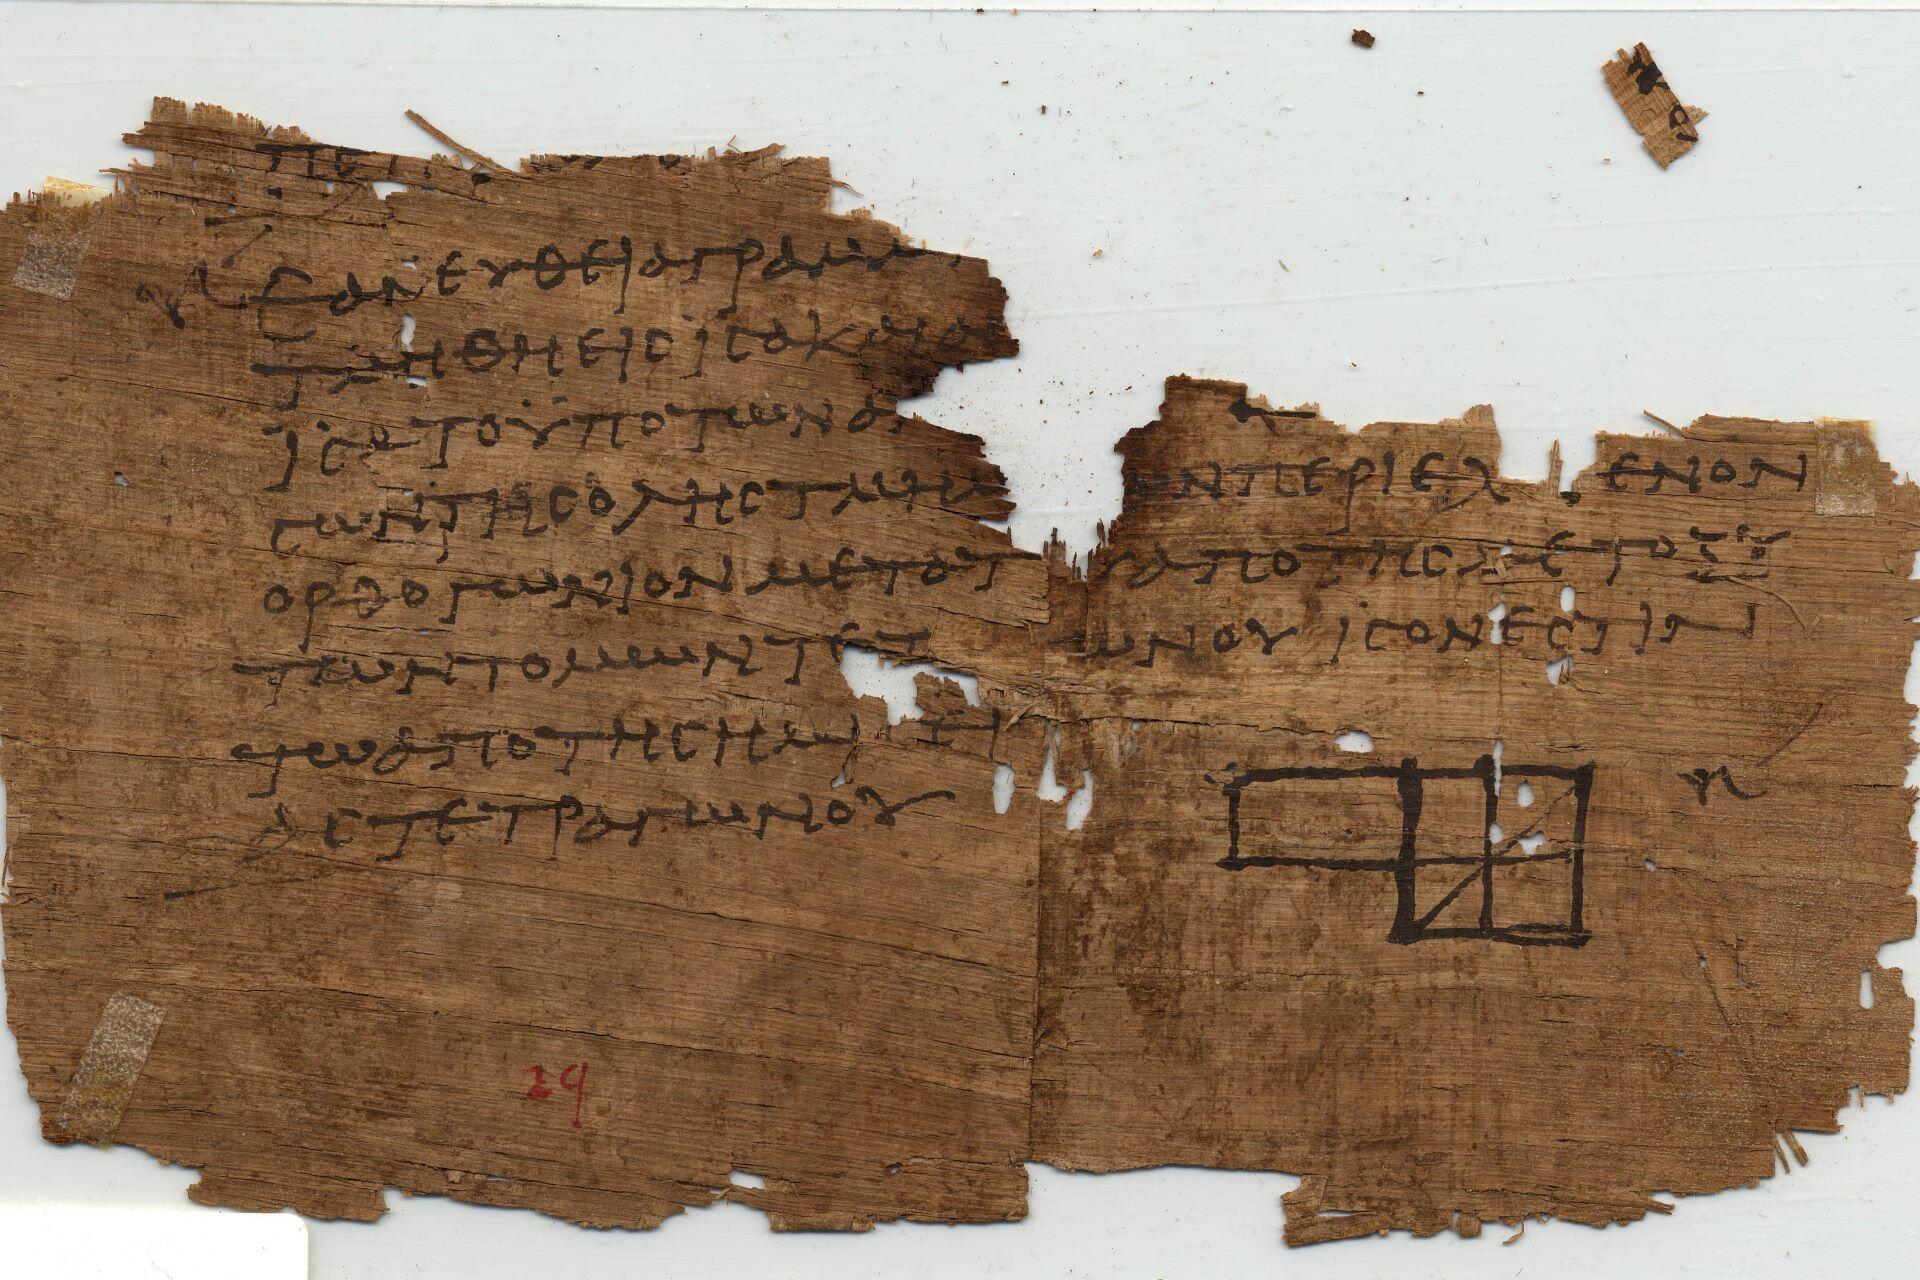 ΕΑΝΕΥΘΕΙΑΓΡΑΜ
ΤΜΗΘΗΕΙϹΙϹΑΚΑΙΑ
ΙϹΑΤΟΫΠΟΤΩΝΑ
ϹΩΝΤΗϹΟΛΗϹΤΜΗΜ ΩΝΠΕΡΙΕΧ ΕΝΟΝ
ΟΡΘΟΓΩΝΙΟΝΜΕΤΑΤ ΥΑΠΟΤΗϹΜΕΤΟΞΥ
ΤΩΝΤΟΜΩΝΤΕΤ ΩΝΟΥΙϹΟΝΕϹΤΙΝ
ΤΩΑΠΟΤΗϹΗΜΙ ΕΙ
ΑϹΤΕΤΡΑΓΩΝΟΥ
29